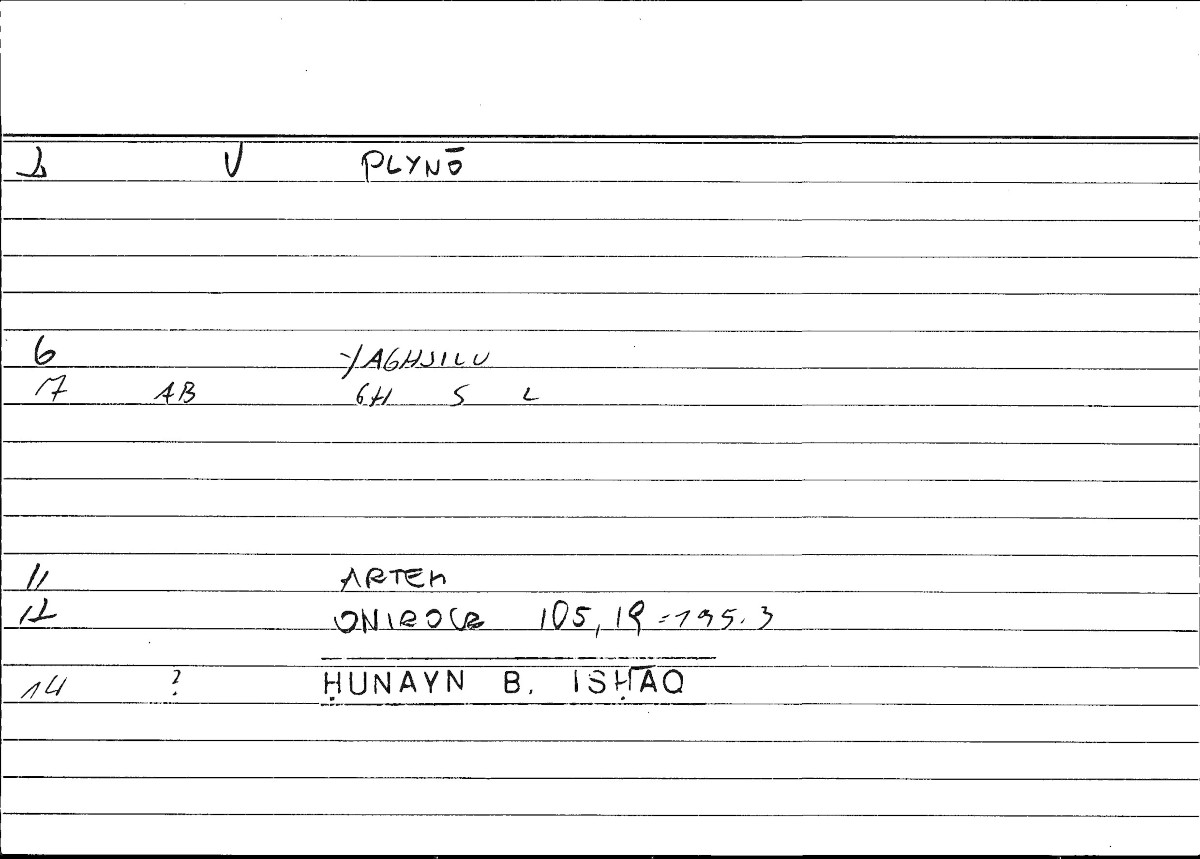 2 V PLYNŌ
6 YAGHSILU
7 AB GH S L
11 ARTEM
12 ONIROCR 105,19 = 195.3
14 ? ḤUNAYN B. ISḤĀQ